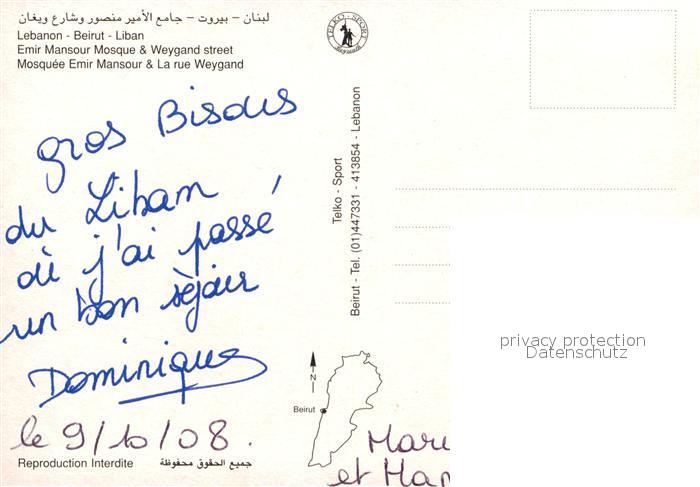 لبنان – بيروت – جامع الأمير منصور وشارع ويغان
Lebanon - Beirut - Liban
Emir Mansour Mosque & Weygand street
Mosquée Emir Mansour & La rue Weygand
TELKO - SPORT
gros Bisous
du Liban
où j'ai passé
un bon séjour
Dominique
le 9/10/08.
Reproduction Interdite
جميع الحقوق محفوظة
Telko - Sport
Beirut - Tel. (01)447331 - 413854 - Lebanon
N
Beirut
privacy protection
Datenschutz
et